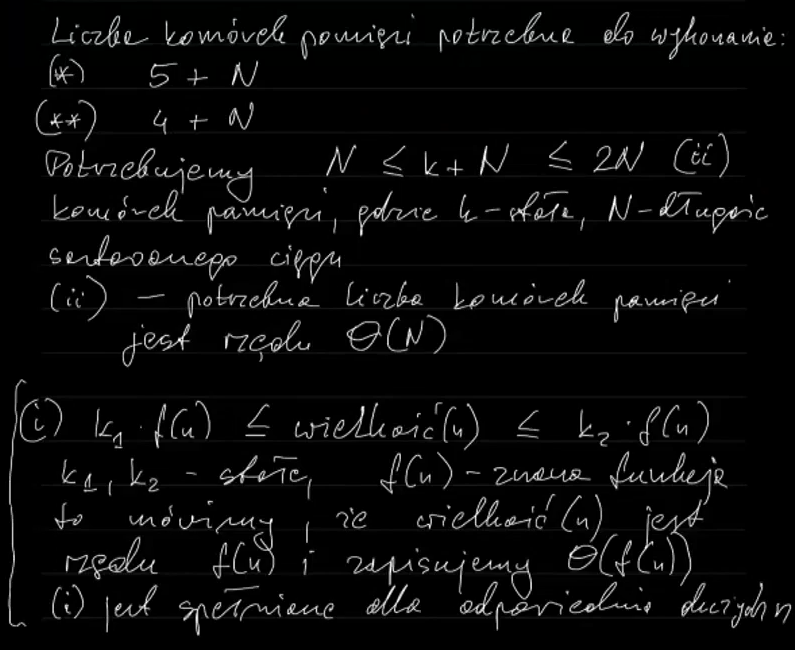 Liczba komórek pamięci potrzebna do wykonania:
(*) 5 + N
(**) 4 + N
Potrzebujemy N ≤ k + N ≤ 2N (ii)
komórek pamięci, gdzie k - stała, N - długość
sortowanego ciągu
(ii) — potrzebna liczba komórek pamięci
jest rzędu Θ(N)
(i) k₁ · f(n) ≤ wielkość(n) ≤ k₂ · f(n)
k₁, k₂ - stałe, f(n) - znana funkcja
to mówimy, że wielkość(n) jest
rzędu f(n) i zapisujemy Θ(f(n))
(i) jest spełnione dla odpowiednio dużych n